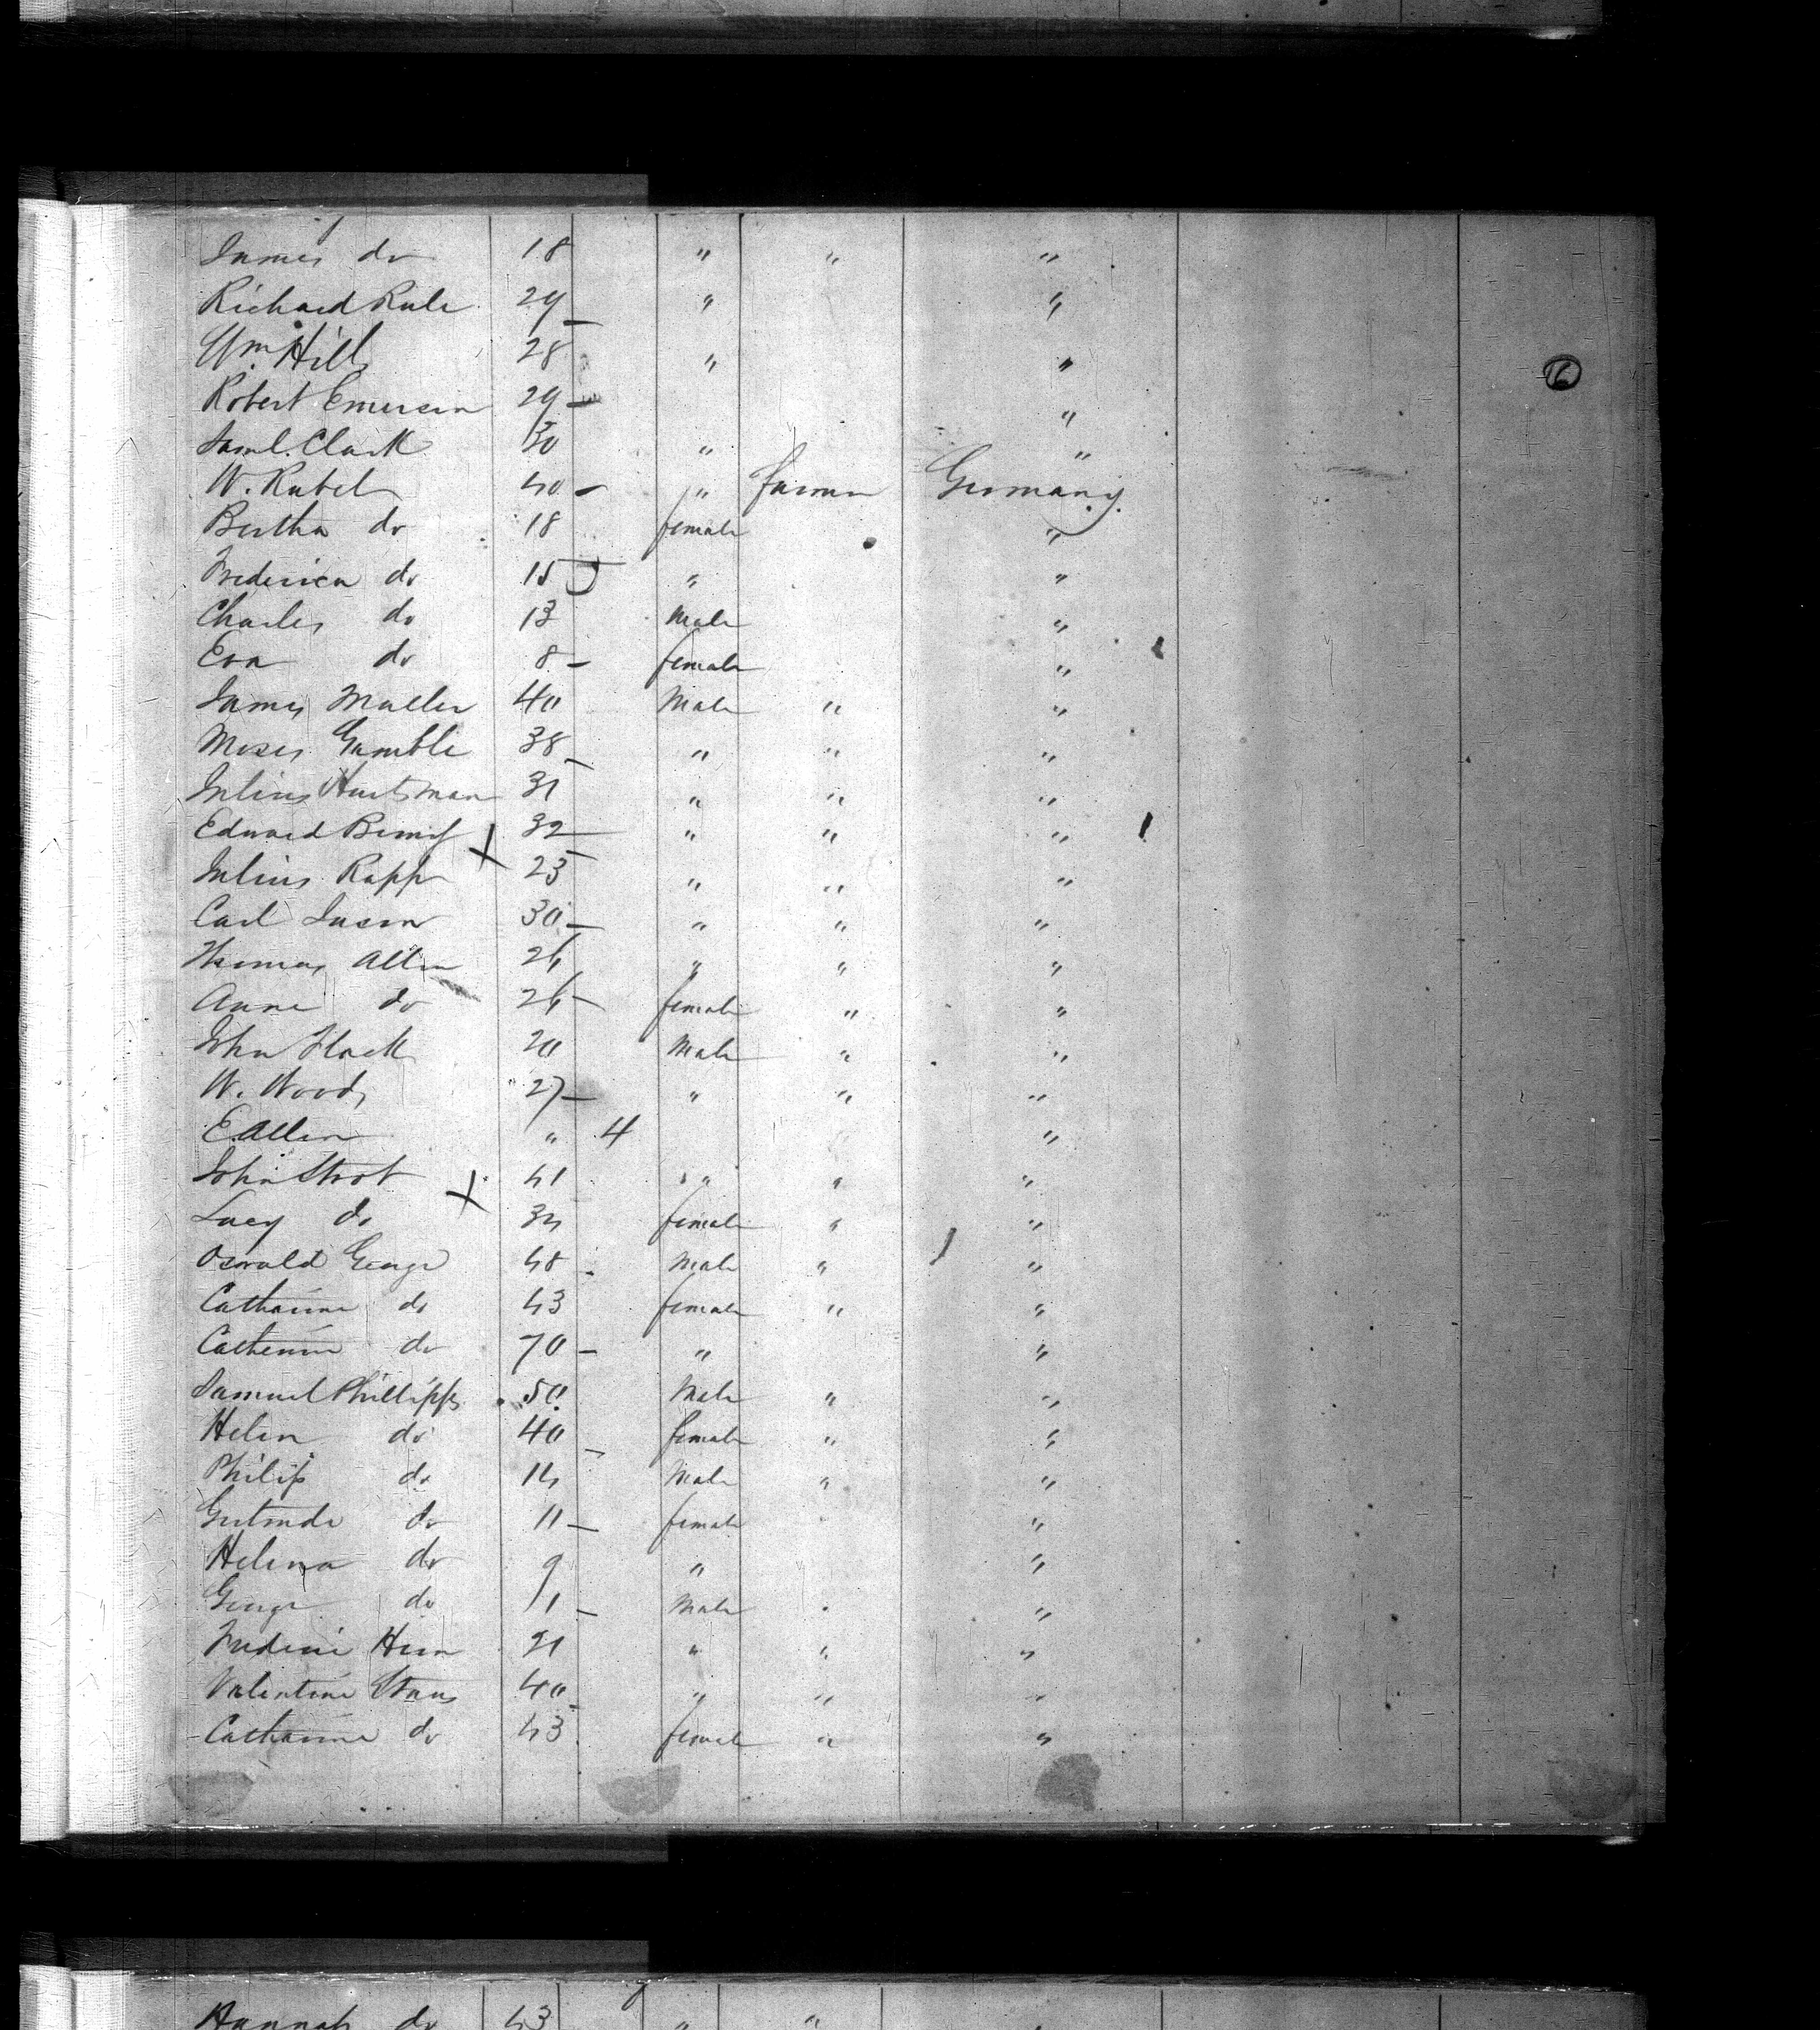 James do 18 " " "
Richard Rule 29 " "
Wm. Hill 28 " "
16
Robert Emerson 29 "
Saml. Clark 30 " "
W. Rubel 40 " farmer Germany
Bertha do 18 female "
Frederica do 15 " "
Charles do 13 Male "
Eva do 8 female "
James Muller 40 Male " "
Moses Gamble 38 " " "
Julius Hurtsman 31 " " "
Edward 32 " " "
Julius Rapp 23 " " "
Carl 30 " " "
Thomas Allen 24 " " "
Anne do 24 female " "
John 20 Male " "
W. Wood 27 " " "
E. Allen " 4 "
John Strot 41 " " "
Lucy do 34 female " "
Oswald George 48 Male " "
Catharine do 43 female " "
Catherine do 70 " "
Samuel Phillipps 50 Male " "
Helen do 40 female " "
Philip do 14 Male " "
Gertrude do 11 female "
Helena do 9 " "
George do 1 Male "
21 " " "
Valentine 40 " " "
Catharine do 43 female " "
Hannah do 43 " "